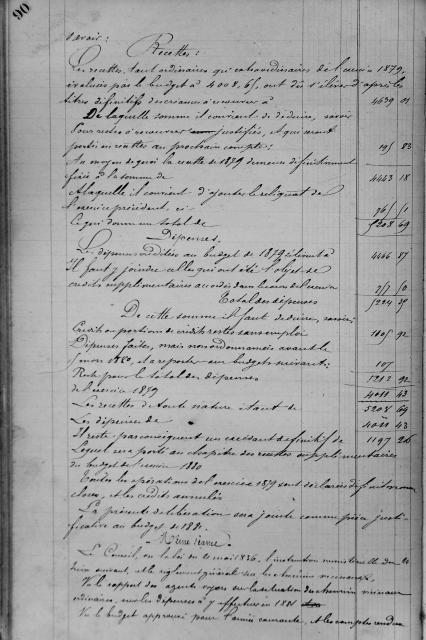 90
Savoir:
Recettes:
Les recettes, tant ordinaires qu'extraordinaires de l'exercice 1879,
évaluées par le budget à 4008,65, ont dû s'élever d'après les
titres définitifs des créances à recouvrer à 4639 01
De laquelle somme il convient de déduire, savoir
Pour restes à recouvrer justifiés, et qui seront
portés en recettes au prochain compte: 195 83
Au moyen de quoi la recette de 1879 demeure définitivement
fixée à la somme de 4443 18
A laquelle il convient d'ajouter le reliquat de
l'exercice précédent, ci 765 51
Ce qui donne un total de 5208 69
Dépenses.
Les dépenses créditées au budget de 1879 s'élèvent à
Il faut y joindre celles qui ont été l'objet de
crédits supplémentaires accordés dans le cours de l'exercice
Total des dépenses 5224 35
De cette somme il faut déduire, savoir:
Crédits ou portions de crédits restés sans emploi 1105 92
Dépenses faites, mais non ordonnancées avant le
mars 1880, et à reporter aux budgets suivants: 107
Reste pour le total des dépenses 1212 92
de l'exercice 1879 4011 43
Les recettes de toute nature étant de 5208 69
Les dépenses de 4011 43
Il reste par conséquent un excédant définitif de 1197 26
Lequel sera porté au chapitre des recettes supplémentaires
du budget de l'exercice 1880
Toutes les opérations de l'exercice 1879 sont déclarées définitivement
closes, et les crédits annulés
La présente délibération sera jointe comme pièce justi-
ficative au budget de 1881.
Même séance.
Le Conseil, vu la loi du 21 mai 1836, l'instruction ministérielle du 24
juin suivant, et le règlement général sur les chemins vicinaux.
Vu le rapport des agents voyers sur la situation des chemins vicinaux
ordinaires, sur les dépenses à y effectuer en 1881
Vu le budget approuvé pour l'année courante, et les comptes rendus